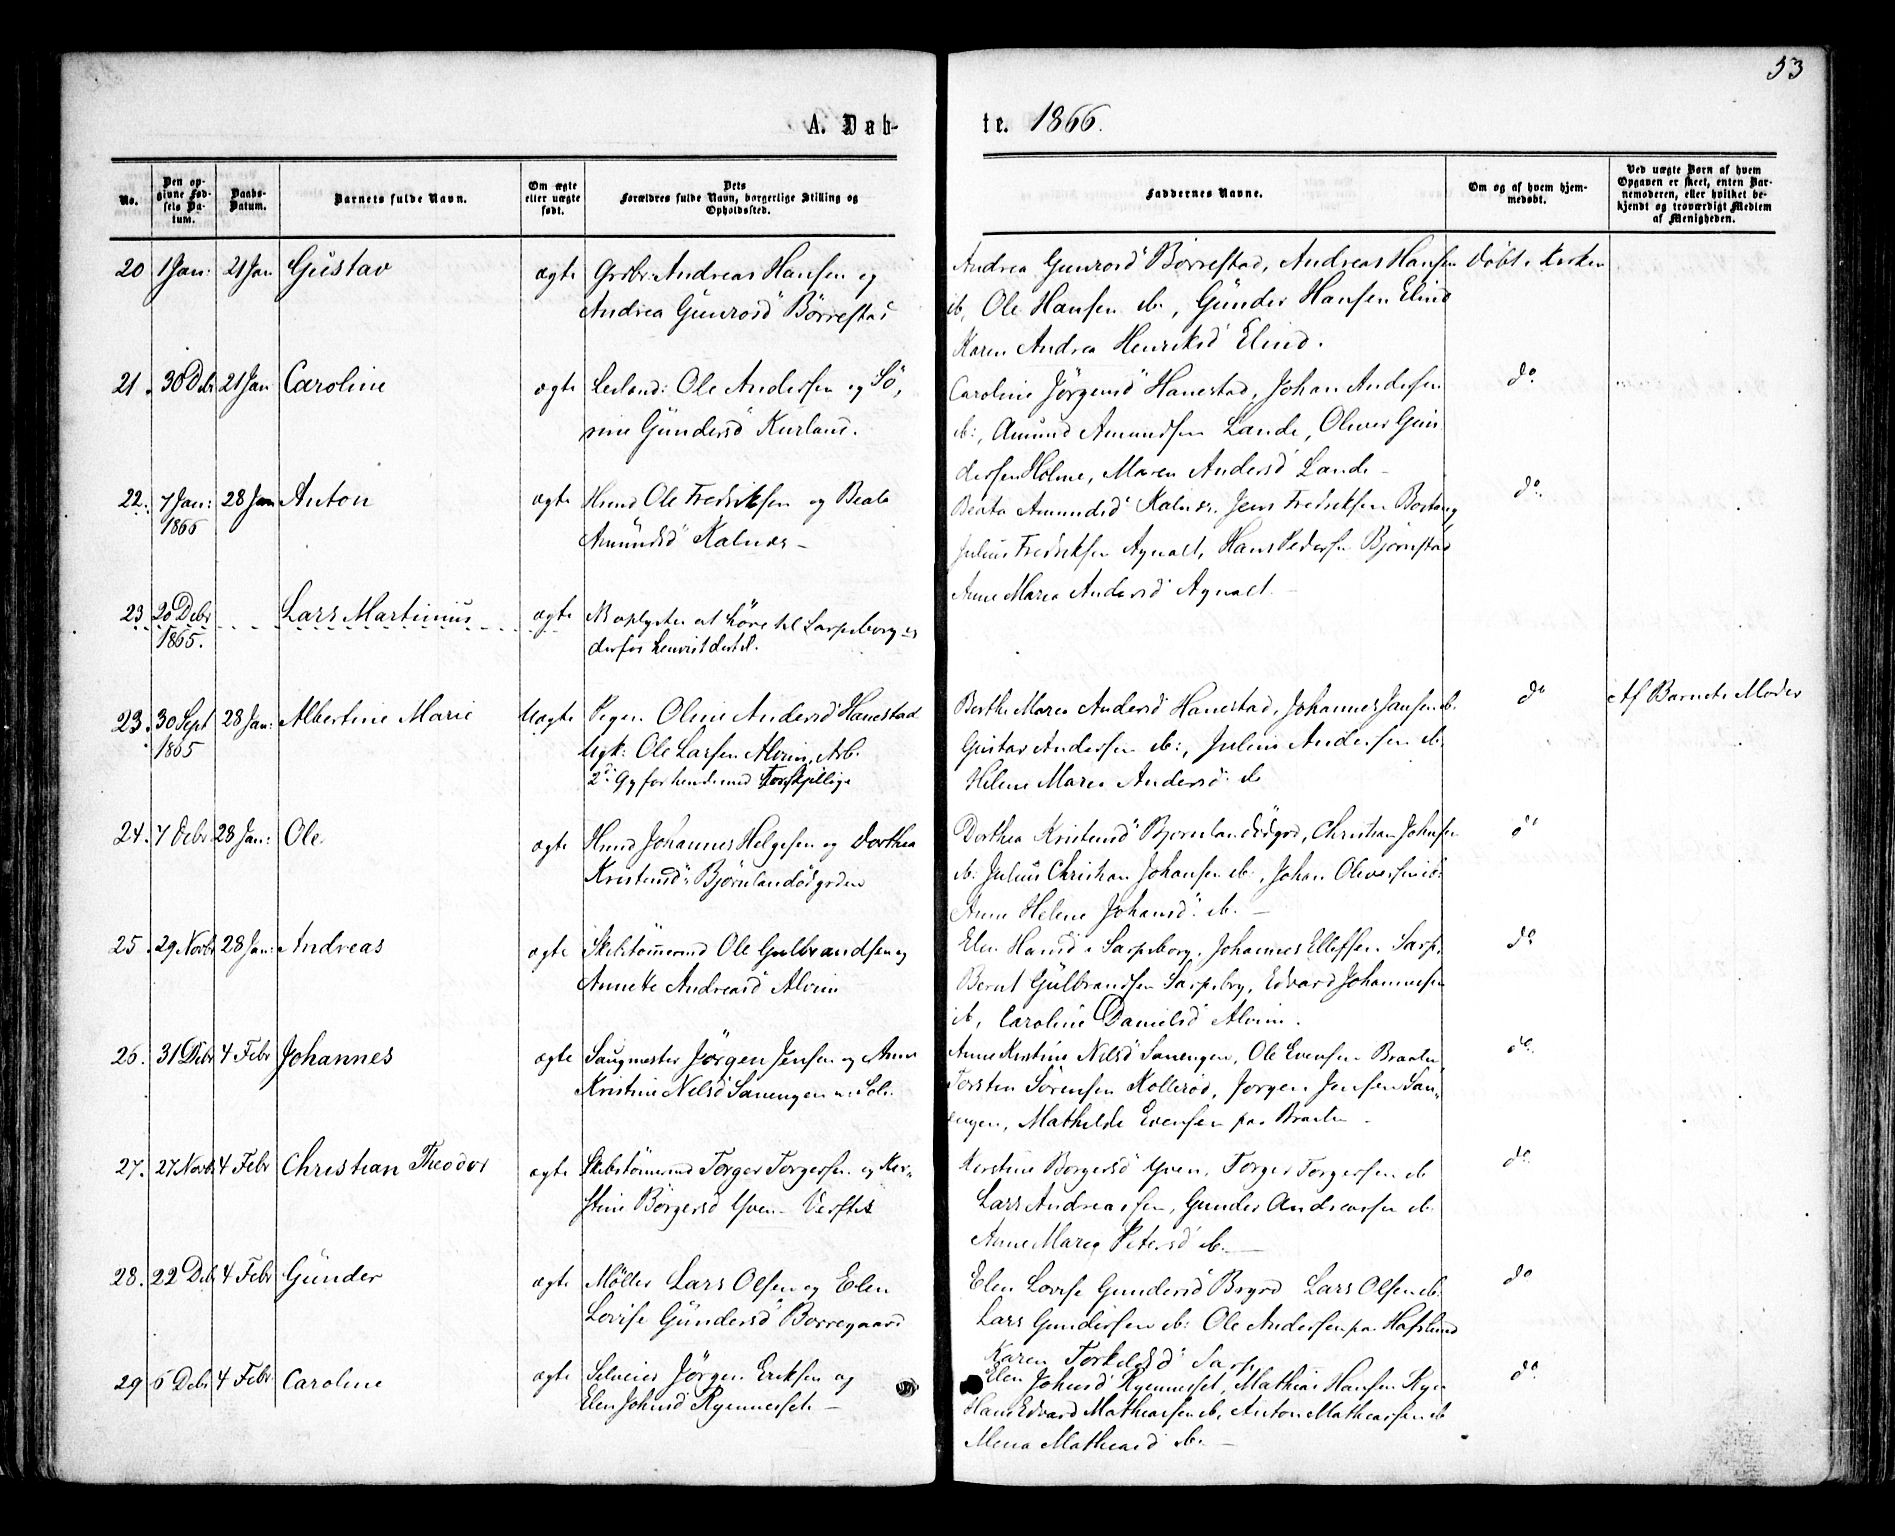 53
A. Døb-
te. 1866.
No.
Den op-
givne Fød-
sels Da-
tum.
Daabs-
Datum.
Barnets fulde Navn.
Om ægte
eller uægte
født.
Dets
Forældres fulde Navn, borgerlige Stilling og
Opholdssted.
Faddernes Navne.
Om og af hvem hjem-
medøbt.
Ved uægte Børn af hvem
Opgaven er skeet, enten Bar-
nemoderen, eller hvilket be-
kjendt og troværdigt Medlem
af Menigheden.
20 1 Jan: 21 Jan Gustav ægte Grdbr. Andreas Hansen og
Andrea Gunrosd Børrestad
Andrea Gunrosd Børrestad, Andreas Hansen Døbt i Kirken
ib, Ole Hansen ib., Gunder Hansen Elind
Karen Andrea Henriksd Elind.
21. 30 Debr 21 Jan Caroline ægte Leiland: Ole Andersen og Sø,
rine Gundersd Kurland.
Caroline Jörgensd Hanestad, Johan Andersen do.
ib:, Amund Amundsen Lande, Oliver Gun
dersen Holme, Maren Andersd Lande -
22. 7 Jan: 28 Jan Anton ægte Hsmd Ole Fredriksen og Beate
1866
Amundsd Kalnæs -
Beata Amundsd Kalnæs, Jens Fredriksen Bostang do.
Julius Fredriksen Agnalt, Hans Pedersen Bjørnstad
Anne Maria Andersd Agnalt. -
23 20 Debr Lars Martinius ægte NB oplystes at høre til Sarpsborg er
1865. derfor henvist dertil.
23. 30 Sept 28 Jan: Albertine Marie Uægte Pigen Oline Andersd Hanestad
1865
Ugk: Ole Larsen Alvim, Arb.
2d. Gg for hende med forskjellige
Berthe Maria Andersd Hanestad, Johannes Jansen ib. do Af Barnets Moder
Gustav Andersen ib:, Julius Andersen ib.
Helene Maria Andersd. ib
24. 7 Debr 28 Jan: Ole ægte Hsmd Johannes Helgesen og Dorthea
Kristensd. Bjørnlandødgrden
Dorthea Kristensd Bjørnlandødgrd, Christian Johnsen do
ib: Julius Christian Johansen ib:, Johan Oliversen ib:
Anne Helene Johansd. ib. -
25. 29 Novbr 28 Jan: Andreas ægte Skibstömermd Ole Gulbrandsen og
Annette Andreasd Alvim
Elen Hansd i Sarpsborg, Johannes Ellefsen Sarp, do
Bernt Gulbrandsen Sarpsbrg, Edvard Johannesen
ib, Caroline Danielsd Alvim.
26. 31 Debr 4 Febr Johannes ægte Saugmester Jörgen Jensen og Anne
Kristine Nilsd Sanengen
Anne Kirstine Nilsd Sanengen, Ole Evensen Braaten do.
Torsten Sörensen Kollerød, Jørgen Jensen San,
engen, Mathilde Evensen paa Braaten.
27. 27 Novbr 4 Febr Christian Theodor ægte Skibstömermd Torger Torgersen og Kir-
stine Börgersd Yven Verftet
Kirstine Borgersd Yven, Torger Torgersen ib do.
Lars Andreassen, Gunder Andreassen ib.
Anne Maria Petersd ib. -
28. 22 Debr 4 Febr Gunder ægte Møller Lars Olsen og Elen
Lovise Gundersd Borregaard
Elen Lovise Gundersd Brgrd Lars Olsen ib. do
Lars Gundersen ib: Ole Andersen paa Hafslund
Karen Torkelsd Sarp,
29 6 Debr 4 Febr Caroline ægte Selveier Jörgen Eriksen og
Elen Johnsd Ryenneset. -
Elen Johnsd Ryenneset, Mathias Hansen Ryen do.
Hans Edvard Mathiassen ib, Anton Mathiassen ib
Mena Mathiasd ib. -